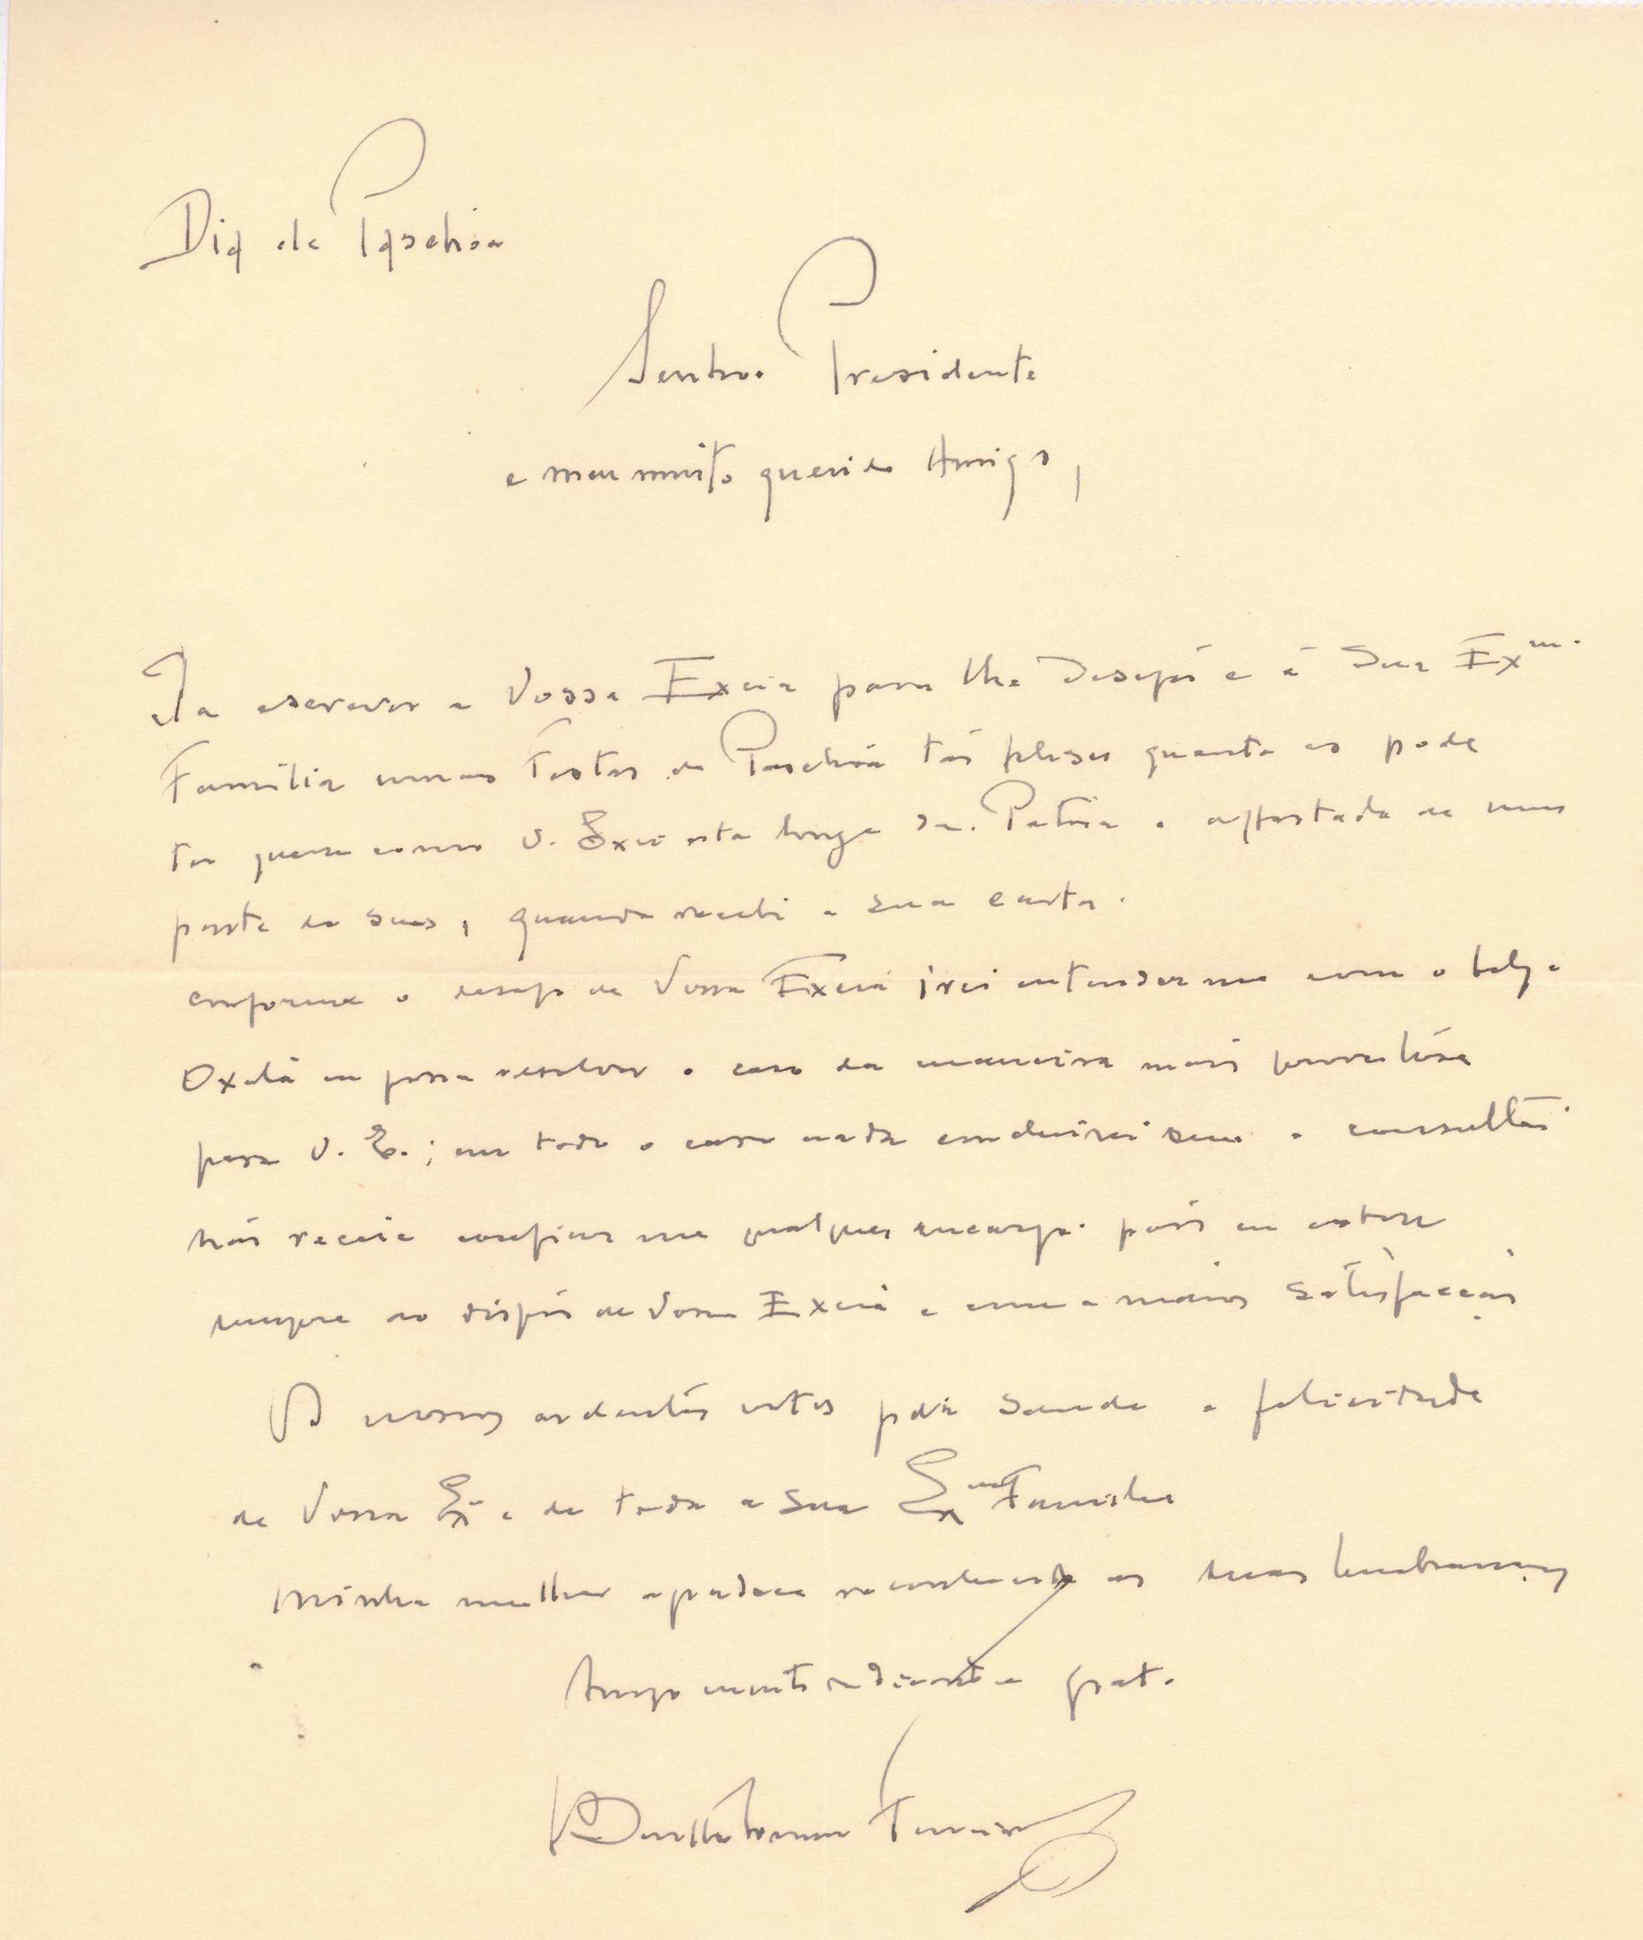 Dia de Paschoa
Senhor Presidente
e meu muito querido Amigo,
Ia escrever a Vossa Excia para lhe desejar e á Sua Exma.
Familia umas Festas da Paschoa tão felizes quanto as pode
ter quem como V. Excia está longe da Patria e affastado de uma
parte dos seus, quando recebi a sua carta.
Conforme o desejo de Vossa Excia irei entender me com o belga
Oxalá eu possa resolver o caso da maneira mais proveitosa
para V. E.; em todo o caso nada concluirei sem o consultar.
Não receie confiar me qualquer encargo pois eu estou
sempre ao dispôr de Vossa Excia e com a maior satisfacção.
Os nossos ardentes votos pela saude e felicidade
de Vossa Exa e de toda a sua Exma Familia
Minha mulher agradece reconhecida as suas lembranças
Amigo muito dedicado e grato